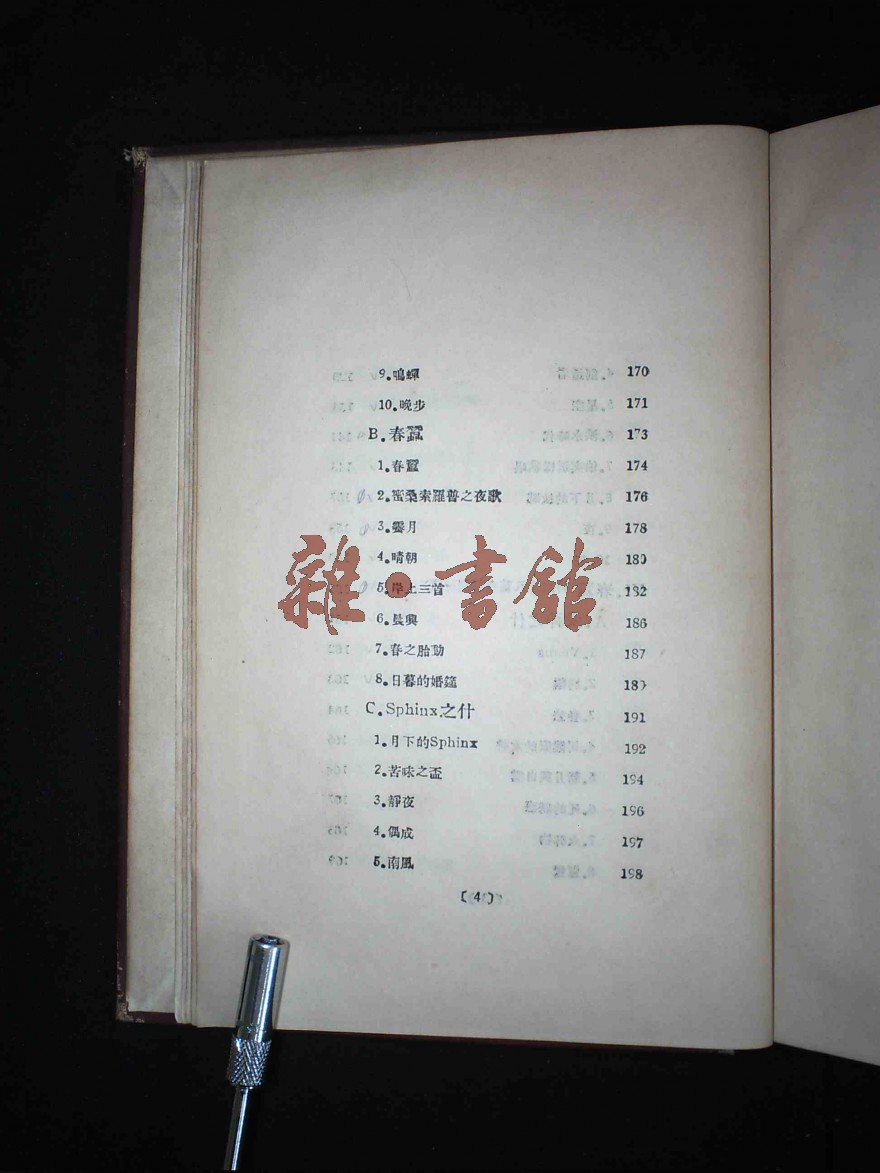 9.鳴蟬 170
10.晚步 171
B.春蠶 173
1.春蠶 174
2.蜜桑索羅普之夜歌 176
3.霽月 178
4.晴朝 180
5.岸上三首 182
6.晨興 186
7.春之胎動 187
8.日暮的婚筵 189
C.Sphinx之什 191
1.月下的Sphinx 192
2.苦味之盃 194
3.靜夜 196
4.偶成 197
5.南風 198
〔4〕
雜·書館